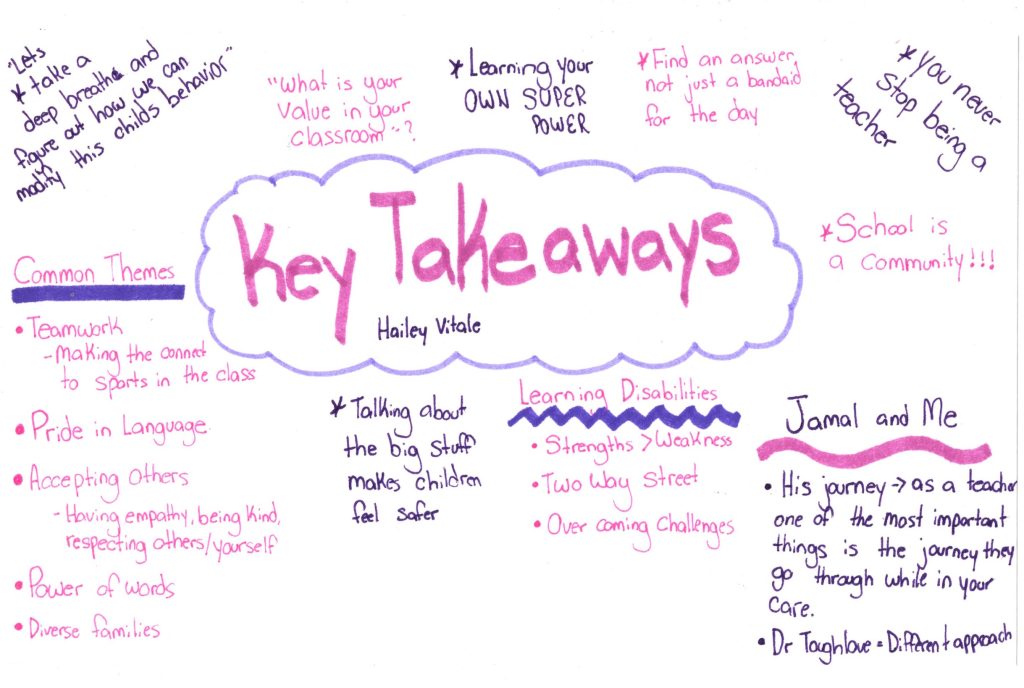 "Lets
* take a
deep breath and
figure out how we can
modify this childs behavior"
"What is your
Value in your
classroom"?
* Learning your
OWN SUPER
POWER
* Find an answer,
not just a bandaid
for the day
* you never
Stop being a
teacher
Key Takeaways
Hailey Vitale
* School is
a Community!!!
Common Themes
• Teamwork
- Making the connect
to sports in the class
• Pride in Language
• Accepting Others
- Having empathy, being kind,
respecting others/yourself
• Power of words
• Diverse families
* Talking about
the big stuff
makes children
feel safer
Learning Disabilities
• Strengths > Weakness
• Two Way Street
• Over coming Challenges
Jamal and Me
• His journey → as a teacher
one of the most important
things is the journey they
go through while in your
care.
• Dr Toughlove = Different approach